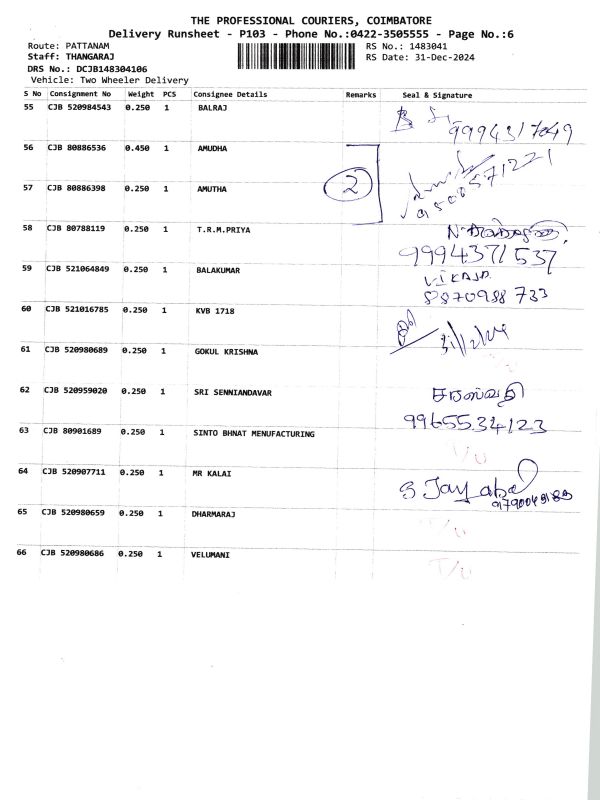 THE PROFESSIONAL COURIERS, COIMBATORE
Delivery Runsheet - P103 - Phone No.:0422-3505555 - Page No.:6
Route: PATTANAM
RS No.: 1483041
Staff: THANGARAJ
RS Date: 31-Dec-2024
DRS No.: DCJB148304106
Vehicle: Two Wheeler Delivery
S No Consignment No Weight PCS Consignee Details Remarks Seal & Signature
55 CJB 520984543 0.250 1 BALRAJ
56 CJB 80886536 0.450 1 AMUDHA
2
57 CJB 80886398 0.250 1 AMUTHA
58 CJB 80788119 0.250 1 T.R.M.PRIYA
9994371537
59 CJB 521064849 0.250 1 BALAKUMAR
8870988733
60 CJB 521016785 0.250 1 KVB 1718
31/12/24
61 CJB 520980689 0.250 1 GOKUL KRISHNA
62 CJB 520959020 0.250 1 SRI SENNIANDAVAR சரஸ்வதி
9965534123
63 CJB 80901689 0.250 1 SINTO BHNAT MENUFACTURING
T/U
64 CJB 520907711 0.250 1 MR KALAI
65 CJB 520980659 0.250 1 DHARMARAJ T/U
66 CJB 520980686 0.250 1 VELUMANI T/U